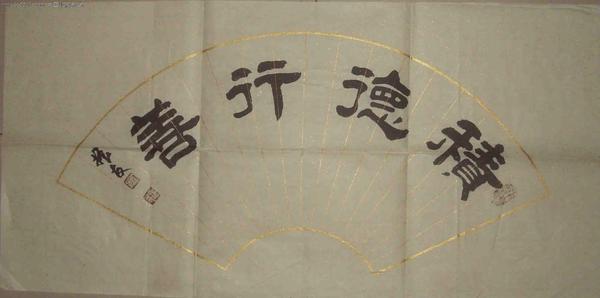 積德行善